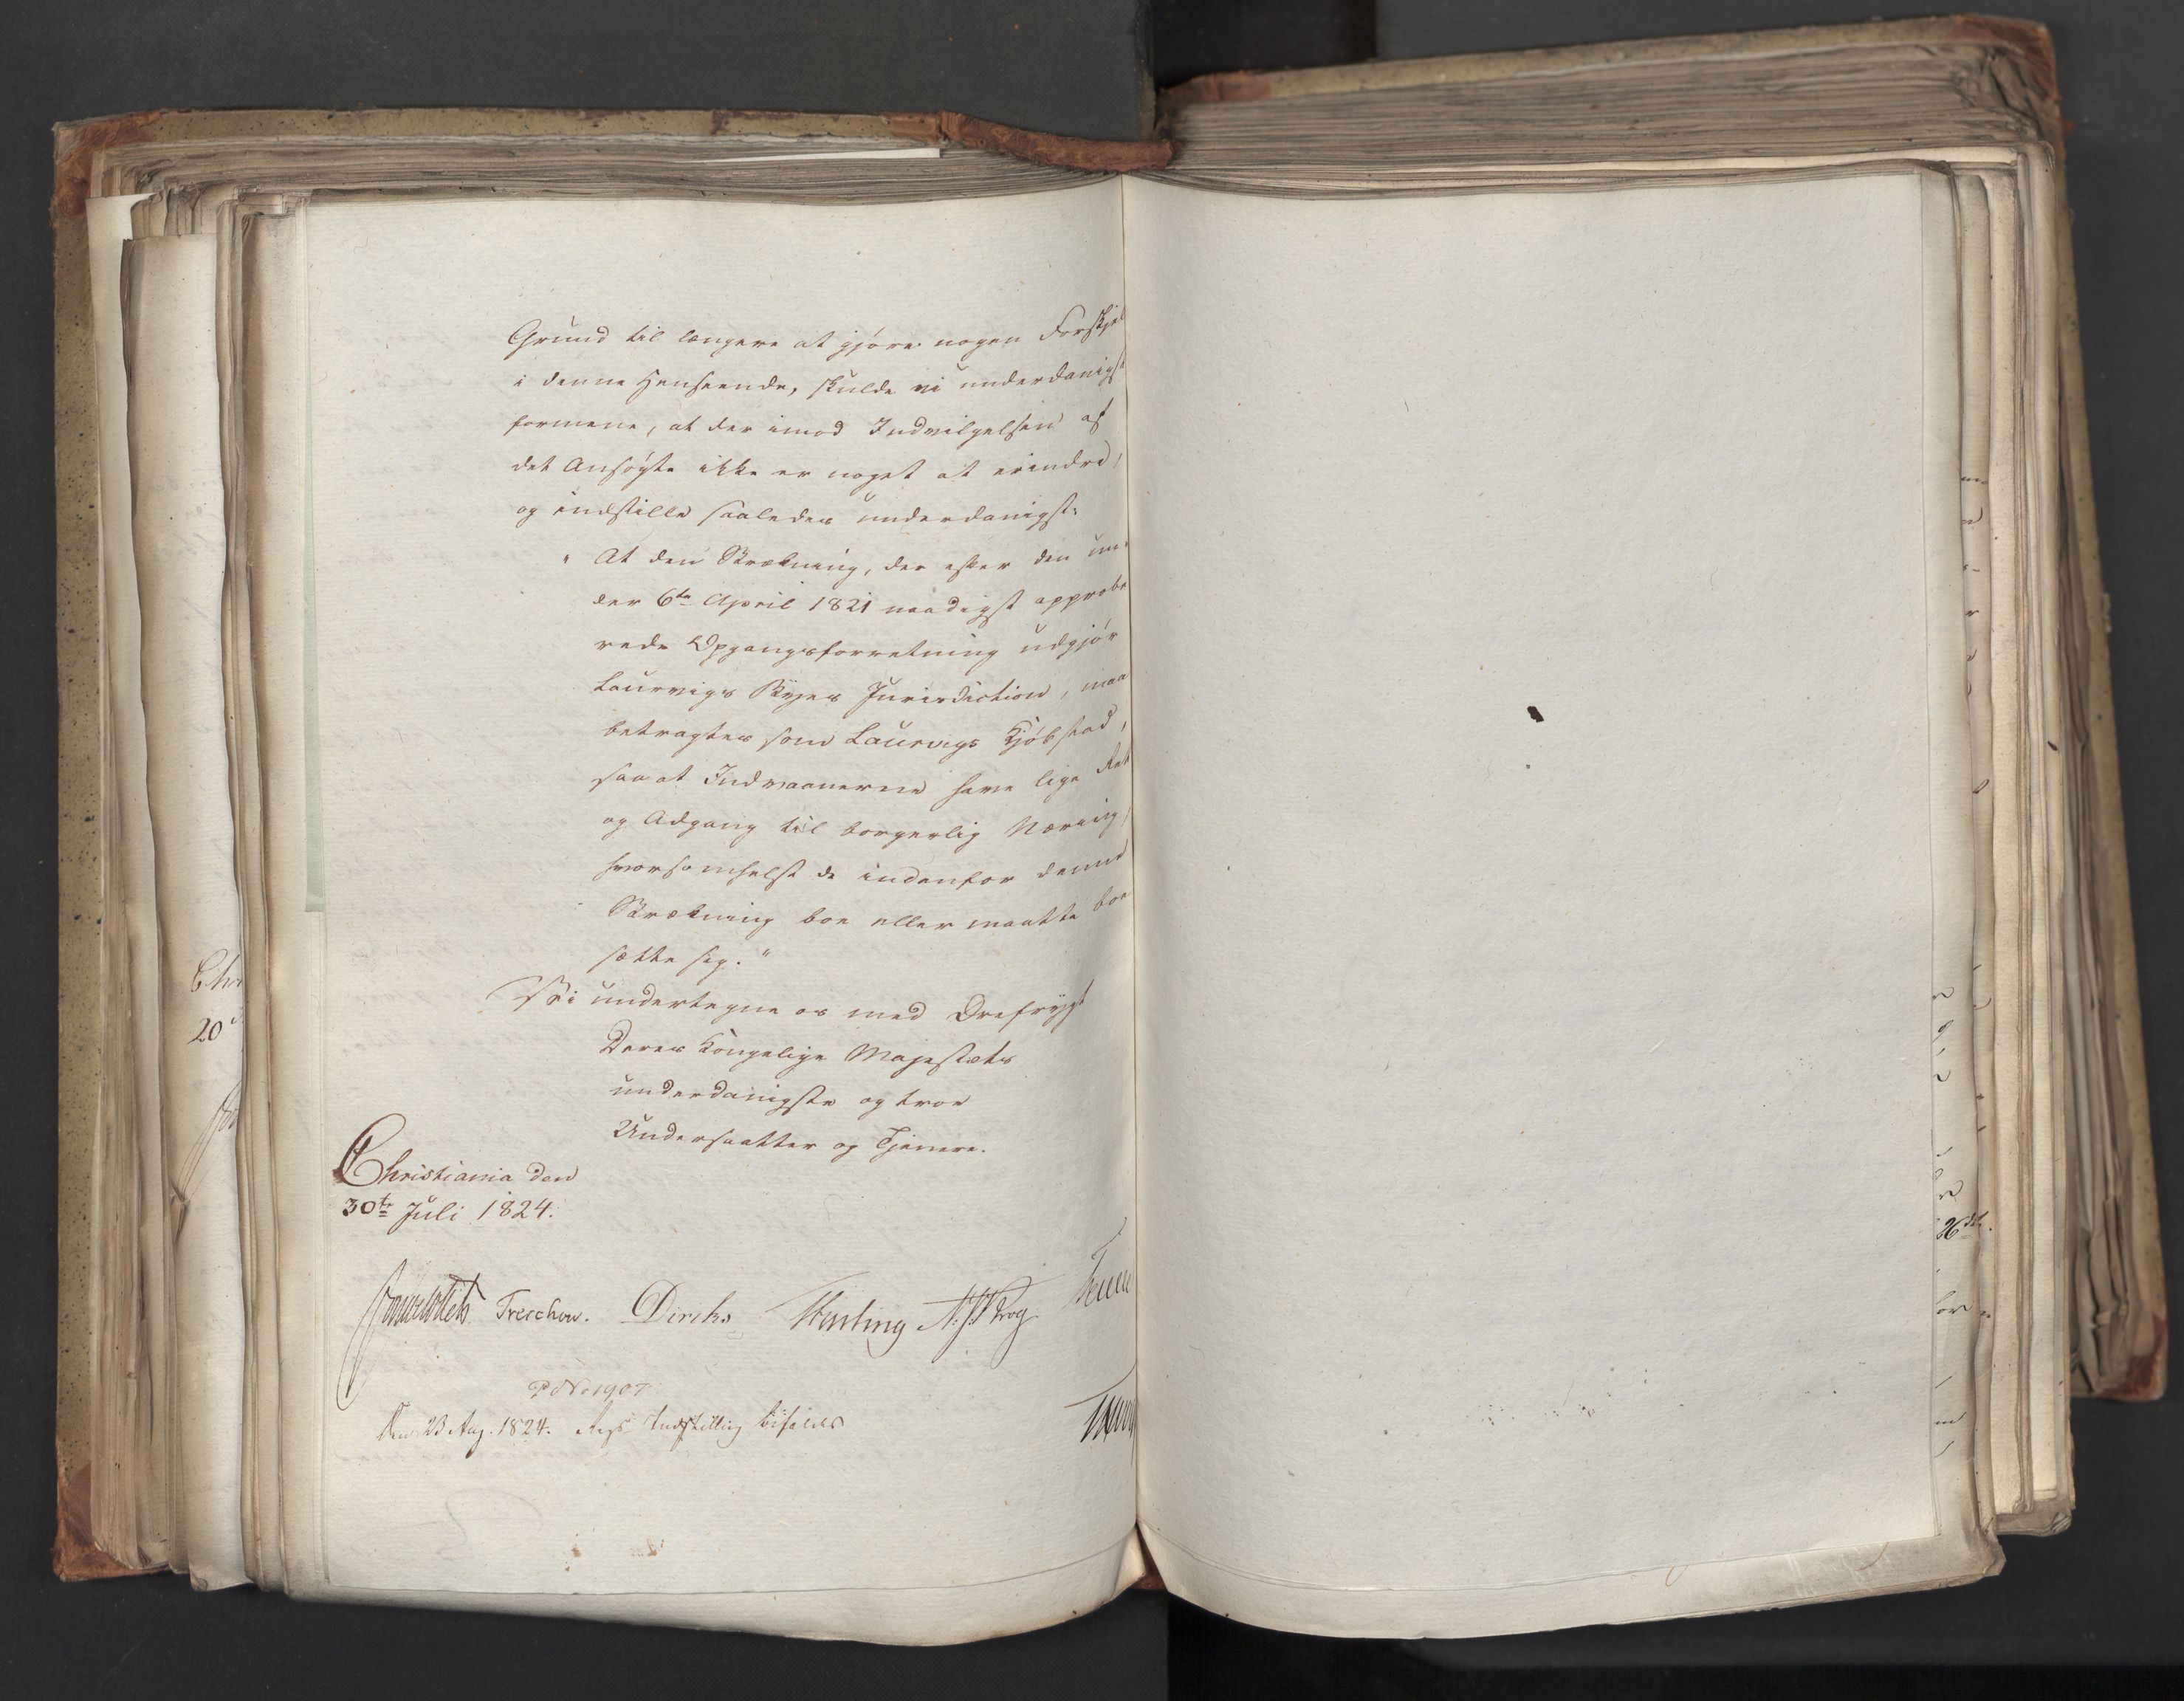 Grund til længere at gjøre nogen Forskjel
i denne Henseende, skulde vi underdanigst
formene, at der imod Indvilgelsen af
det Ansøgte ikke er noget at erindre,
og indstille saaledes underdanigst:
" At den Strækning, der efter den un-
der 6te April 1821 naadigst approbe
rede Opgangsforretning udgjør
Laurvigs Byes Jurisdiction, maa
betragtes som Laurvigs Kjøbstad,
saa at Indvaanerne have lige Ret
og Adgang til borgerlig Næring,
hvorsomhelst de indenfor denne
Strækning boe eller maatte boe
sætte sig. "
Vi undertegne os med Ærefrygt
Deres Kongelige Majestæts
underdanigste og troe
Undersaatter og Tjenere.
Christiania den
30te Juli 1824.
Treschow. Diriks N. J. Krog
P No 1907
Den 23 Aug. 1824. Regs Indstilling bifaldes
Chr
20
26de.